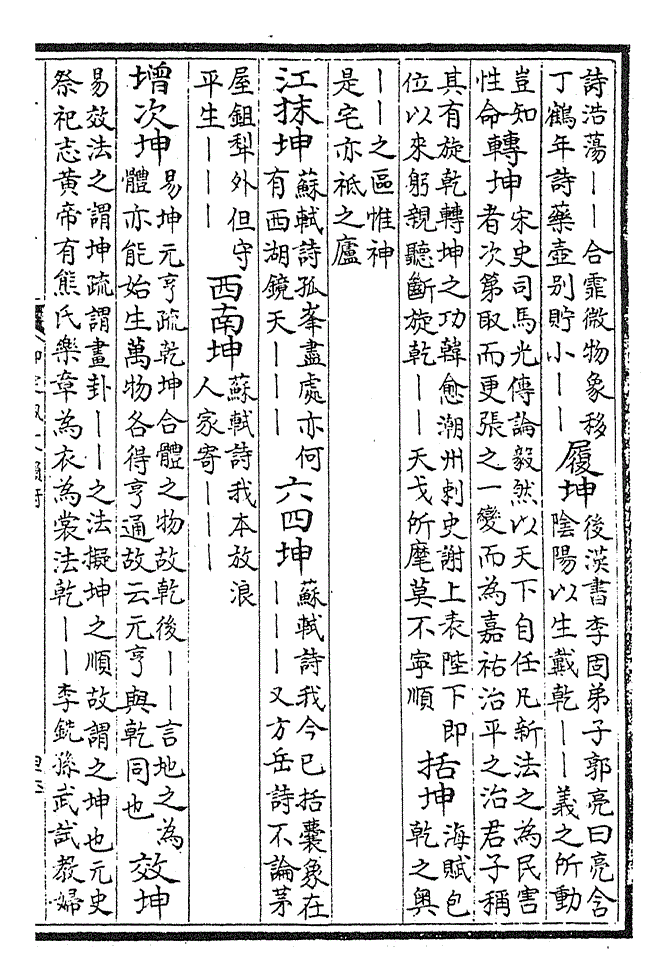 詩浩蕩——合霏微物象移
丁鶴年詩藥壺别貯小——
履坤
後漢書李固弟子郭亮曰亮含
陰陽以生戴乾——義之所動
豈知
性命
轉坤
宋史司馬光傳論毅然以天下自任凡新法之為民害
者次第取而更張之一變而為嘉祐治平之治君子稱
其有旋乾轉坤之功韓愈潮州刺史謝上表陛下即
位以來躬親聽斷旋乾——天戈所麾莫不寧順
括坤
海賦包
乾之奥
——之區惟神
是宅亦祗之廬
江抹坤
蘇軾詩孤峯盡處亦何
有西湖鏡天———
六四坤
蘇軾詩我今已括囊象在
———又方岳詩不論茅
屋鉏犁外但守
平生———
西南坤
蘇軾詩我本放浪
人家寄———
增次坤
易坤元亨疏乾坤合體之物故乾後——言地之為
體亦能始生萬物各得亨通故云元亨與乾同也
效坤
易效法之謂坤疏謂畫卦——之法擬坤之順故謂之坤也元史
祭祀志黄帝有熊氏樂章為衣為裳法乾——李銑孫武試教婦